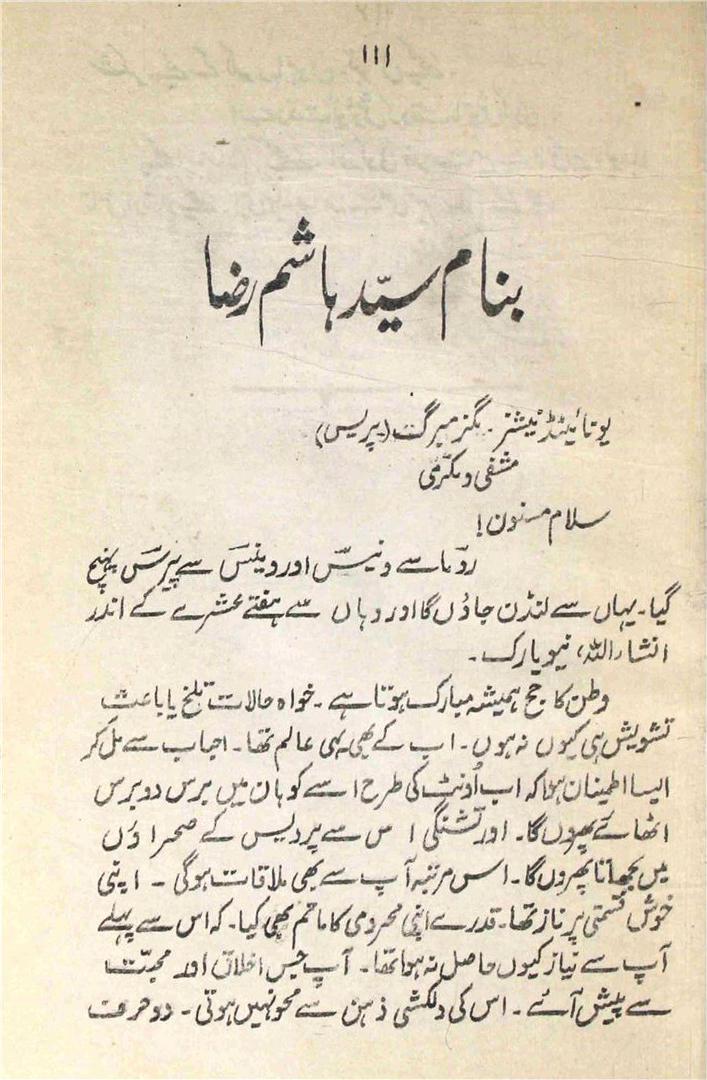 ۱۱۱
بنام سیّد ہاشم رضا
یونائیٹڈ نیشنز۔ (پیرس)
مشفی و مکرّمی
سلام مسنون!
روما سے ونیس اور وینس سے پیرس پہنچ
گیا۔ یہاں سے لنڈن جاؤں گا اور وہاں سے ہفتے عشرے کے اندر
انشاء اللہ، نیو یارک۔
وطن کا حج ہمیشہ مبارک ہوتا ہے۔ خواہ حالات تلخ یا باعث
تشویش ہی کیوں نہ ہوں۔ اب کے بھی یہی عالم تھا۔ احباب سے مل کر
ایسا اطمینان ہوا کہ اب اُونٹ کی طرح اسے کوہان میں برس دو برس
اٹھائے پھروں گا۔ اور تشنگی اس سے پردیس کے صحراؤں
میں بجھاتا پھروں گا۔ اس مرتبہ آپ سے بھی ملاقات ہوگی ۔ اپنی
خوش قسمتی پر ناز تھا۔ قدرے اپنی محرومی کا ماتم بھی کیا۔ کہ اس سے پہلے
آپ سے نیاز کیوں حاصل نہ ہوا تھا۔ آپ جس اخلاق اور محبّت
سے پیش آئے۔ اس کی دلکشی ذہن سے محو نہیں ہوتی۔ دو حرف